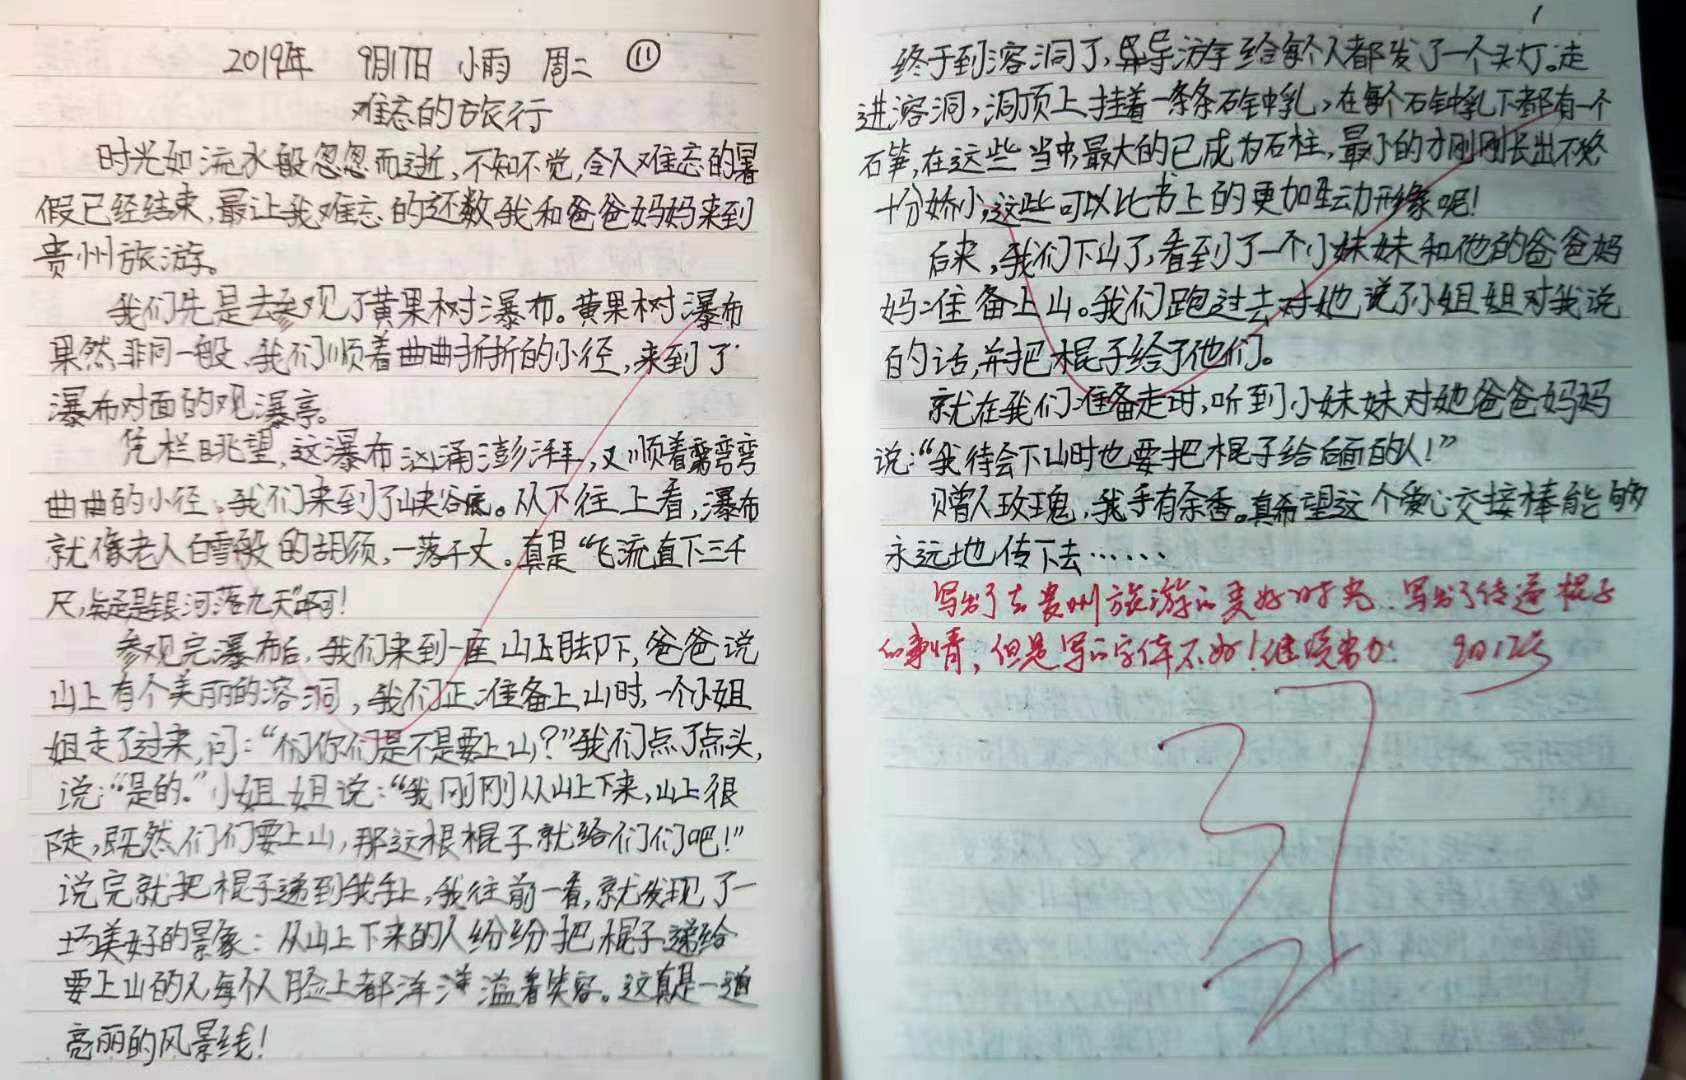 2019年 9月17日 小雨 周二 ⑪
难忘的旅行
时光如流水般忽忽而逝，不知不觉，令人难忘的暑
假已经结束，最让我难忘的还数我和爸爸妈妈来到
贵州旅游。
我们先是去参观了黄果树瀑布。黄果树瀑布
果然非同一般，我们顺着曲曲折折的小径，来到了
瀑布对面的观瀑亭。
凭栏眺望，这瀑布汹涌澎湃，又顺着弯弯
曲曲的小径，我们来到了峡谷底。从下往上看，瀑布
就像老人白雪般的胡须，一落千丈。真是“飞流直下三千
尺，疑是银河落九天”啊！
参观完瀑布后，我们来到一座山脚下，爸爸说
山上有个美丽的溶洞，我们正准备上山时，一个小姐
姐走了过来，问：“你们是不是要上山？”我们点了点头，
说：“是的。”小姐姐说：“我刚刚从山上下来，山上很
陡，既然们们要上山，那这根棍子就给们们吧！”
说完就把棍子递到我手上，我往前一看，就发现了一
场美好的景象：从山上下来的人纷纷把棍子递给
要上山的人，每个人脸上都洋溢着笑容。这真是一道
亮丽的风景线！
1
终于到溶洞了，导游给每个人都发了一个头灯。走
进溶洞，洞顶上挂着一条条石钟乳，在每个石钟乳下都有一个
石笋，在这些当中，最大的已成为石柱，最小的才刚刚长出不久
十分娇小，这些可以比书上的更加生动形象呢！
后来，我们下山了，看到了一个小妹妹和他的爸爸妈
妈准备上山。我们跑过去对她说了小姐姐对我说
的话，并把棍子给了他们。
就在我们准备走时，听到小妹妹对她爸爸妈妈
说：“我待会下山时也要把棍子给后面的人！”
赠人玫瑰，我手有余香。真希望这个爱心交接棒能够
永远地传下去……
写出了去贵州旅游的美好时光，写出了传递棍子
的事情，但是写的字体不好！继续努力！